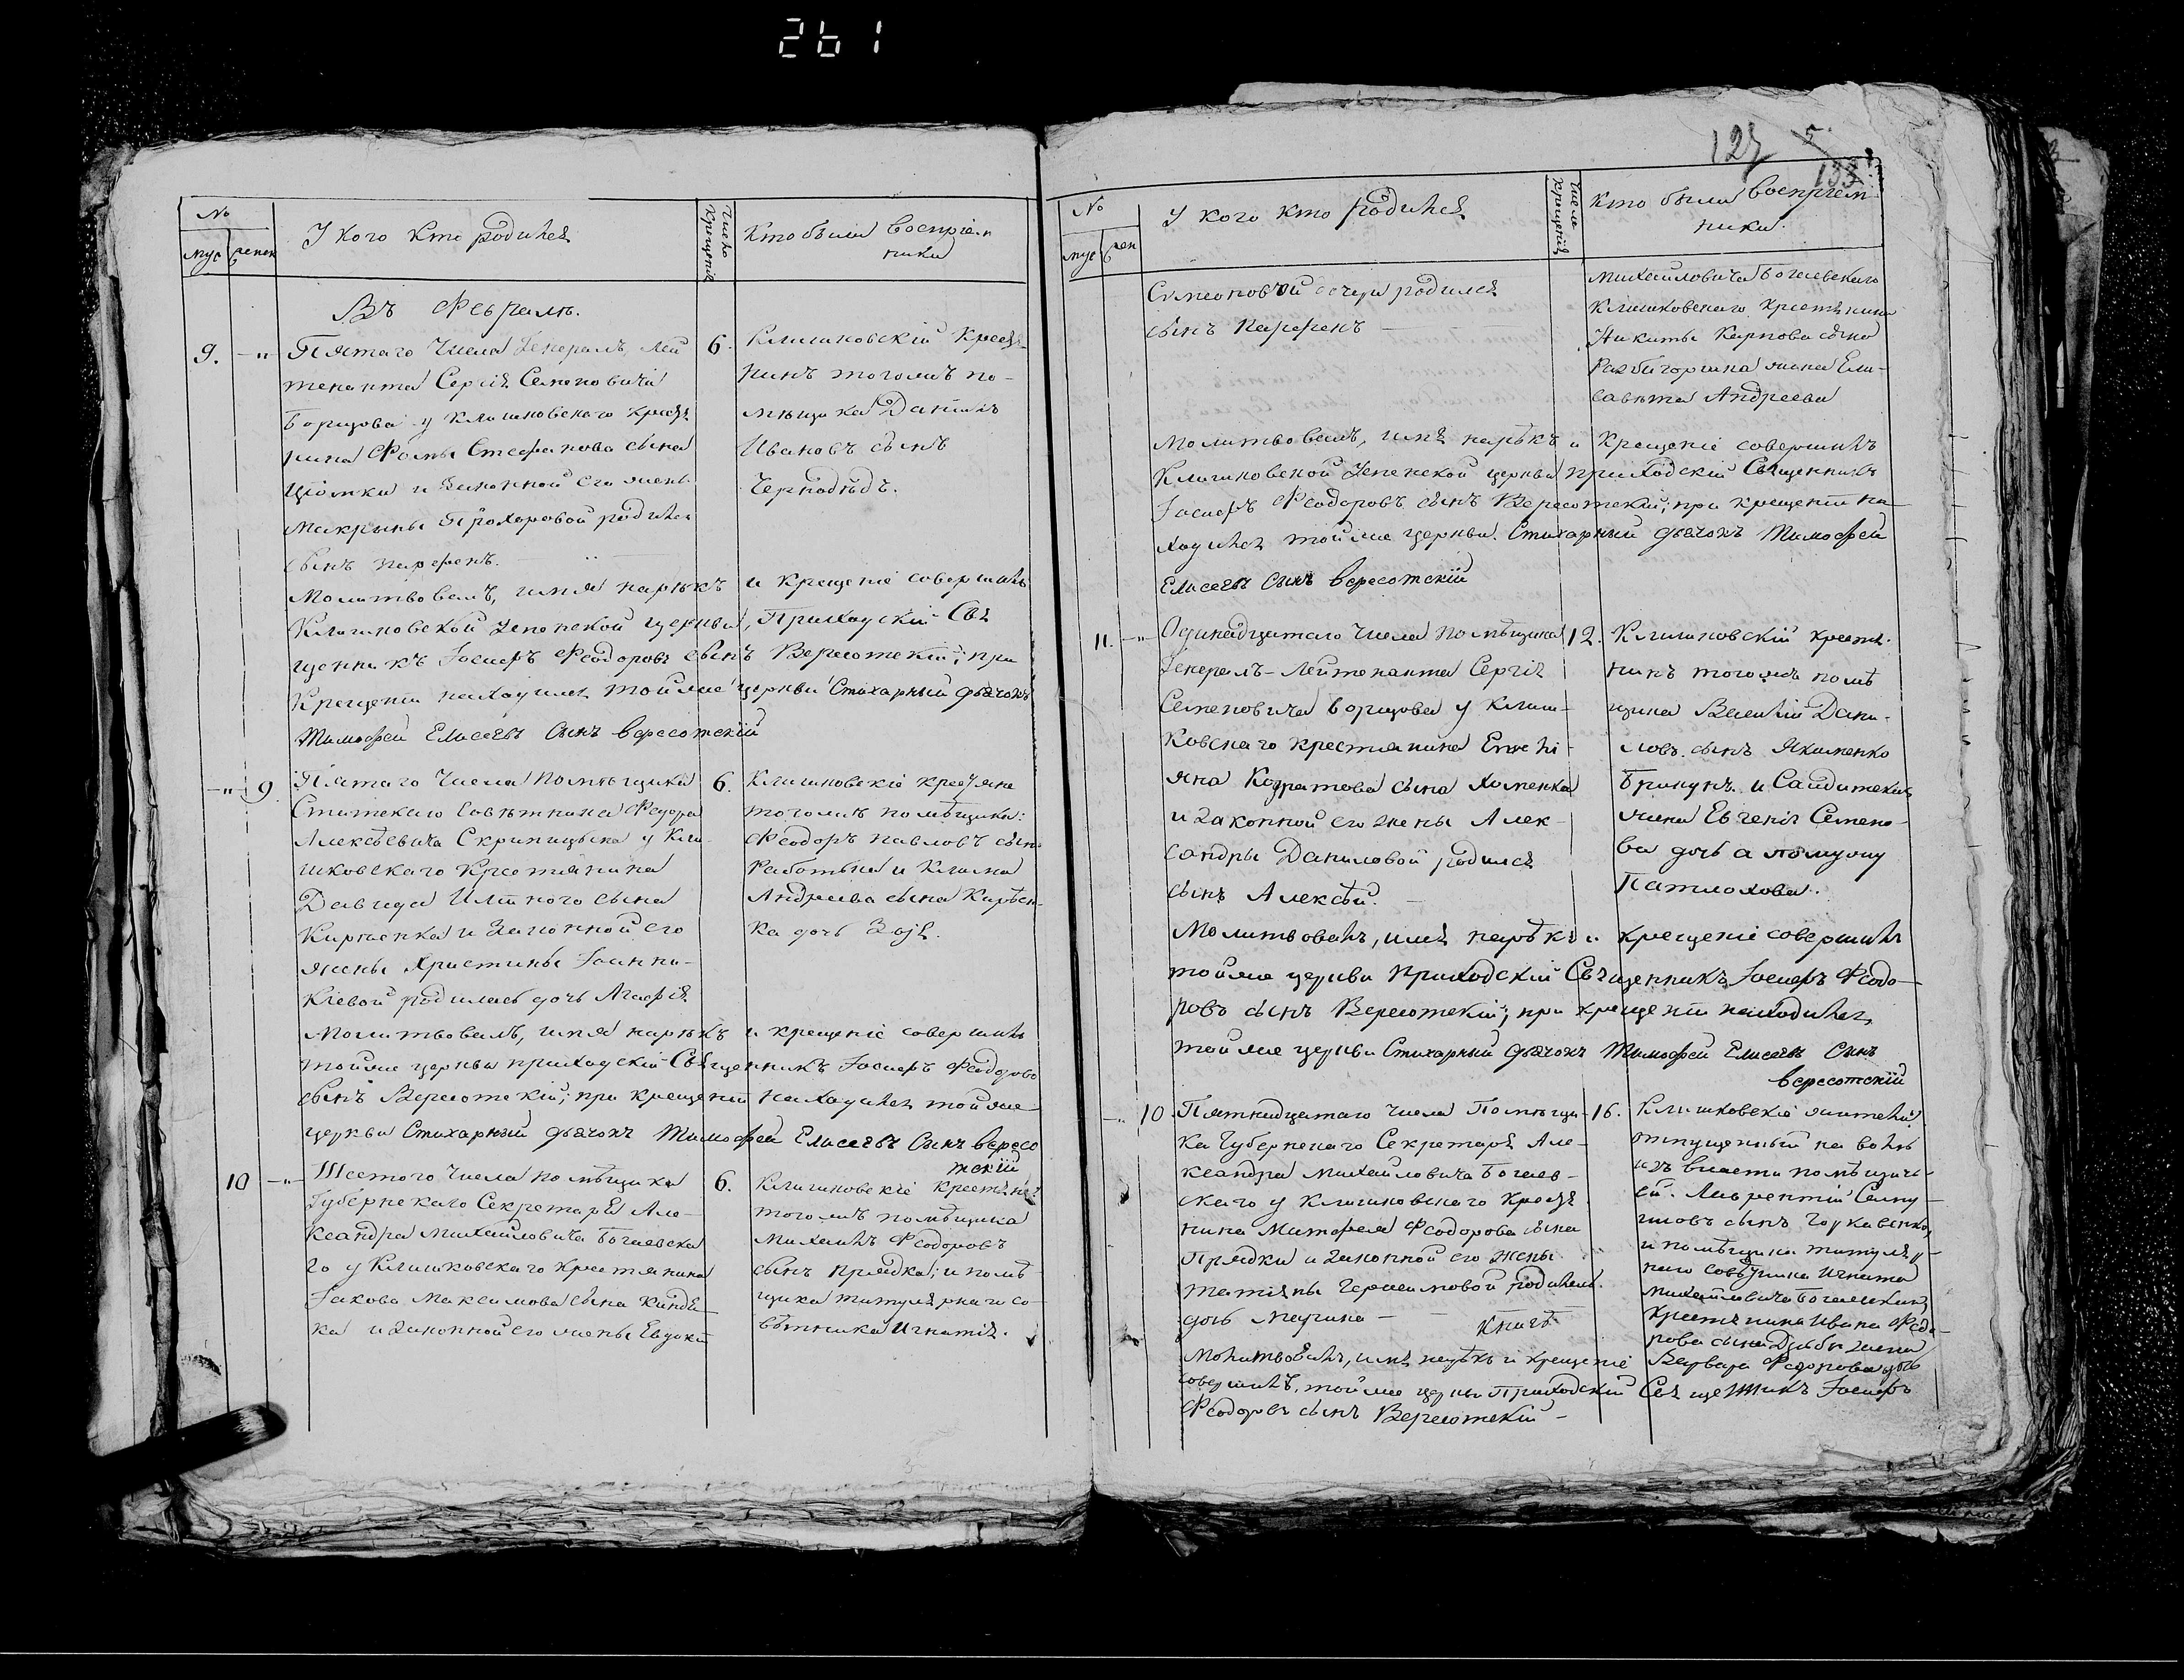 261
№
муж
женск
У кого кто родился
Число крещенія
Кто были воспріем
ники
Въ Февралѣ.
9.
Пятаго Числа Генералъ Лей
тенанта Сергія Семеновича
Борщова у Клишковскаго крестя
нина Фомы Стефанова сына
и законной его жены
Макрины Прохоровой родился
сынъ Парфенъ.
6.
Клишковскій Крестя
нинъ тогожъ по-
мѣщика Даніилъ
Ивановъ сынъ
Чернодѣдъ.
Молитвовалъ, имя нарѣкъ и крещеніе совершилъ
Клишковской Успенской церкви, Приходскій Свя
щенникъ Іосифъ Феодоровъ сынъ Вересотскій; при
Крещеніи находился тойже церкви Стихарный дьячокъ
Тимофей Елисеевъ Сынъ Вересотскій
9
Пятаго Числа Помѣщика
Статскаго Совѣтника Федора
Алексѣевича Скрипицына у Кли
шковскаго Крестянина
Давида сына
Кирѣенка и Законной его
жены Христины Іоанни-
кіевой родилась дочь Агафія
6.
Клишковскіе крестяне
тогожъ помѣщика:
Феодоръ Павловъ сынъ
и Клима
Андреева сына Кирѣен-
ка дочь Зоя.
Молитвовалъ, имя нарѣкъ и крещеніе совершилъ
тойже церкви приходскій Священникъ Іосифъ Феодоровъ
сынъ Вересотскій; при крещеніи находился тойже
церкви Стихарный дьячокъ Тимофей Елисеевъ Сынъ Вересо
тскій
10
Шестого Числа помѣщика
Губернскаго Секретаря Але-
ксандра Михайловича Богаевска
го у Клишковскаго Крестянина
Іакова Максимова сына
ка и законной его жены Евдокіи
6.
Клишковскіе крестяне
тогожъ помѣщика
Михаилъ Феодоровъ
сынъ Прядка; и помѣ
щика титулярнаго со-
вѣтника Игнатія.
127
5
133
№
муж
жен
У кого кто родился
Число крещенія
Кто были воспріем
ники.
Симеоновой дочери родился
сынъ Парфенъ
Михайловича Богаевскаго
Клишковскаго Крестянина
Никиты Карпова сына
жена Ели-
савѣта Андреева
Молитвовалъ, имя нарѣкъ и Крещеніе совершилъ
Клишковской Успенской церкви приходскій Священникъ
Іосифъ Феодоровъ сынъ Вересотскій; при крещеніи на-
ходился тойже церкви Стихарный дьячокъ Тимофей
Елисеевъ Сынъ Вересотскій
11.
Одинадцатаго Числа Помѣщика
Генералъ-Лейтенанта Сергія
Семеновича Борщова у Клиш-
ковскаго крестянина
Кодратова сына Хоменка
и законной его жены Алек-
сандры Даниловой родился
сынъ Алексѣй.
12.
Клишковскій крестя-
нинъ тогожъ помѣ
щика Василій Дани-
ловъ сынъ Якименко
и
жена Евгенія Семено-
ва дочь а по мужу
Патлохова.
Молитвовалъ, имя нарѣкъ и крещеніе совершилъ
тойже церкви Приходскій Священникъ Іосифъ Феодо-
ровъ сынъ Вересотскій; при крещеніи находился
тойже церкви Стихарный дьячокъ Тимофей Елисеевъ Сынъ
Вересотскій
10
Пятнадцатаго числа Помѣщи-
ка Губернскаго Секретаря Але-
ксандра Михайловича Богаев-
скаго у Клишковскаго Крестя
нина Митофея Феодорова сына
Прядки и законной его жены
Татіяны Герасимовой родилась
дочь Марина
16.
Клишковскіе жители:
отпущенный на волю
изъ власти помѣщичь-
ей Лаврентій
сынъ
и помѣщика титуляр-
наго совѣтника Игната
Михайловича Богаевскаго
крестянина Ивана Федо-
рова сына жена
Варвара дочь
Молитвовалъ, имя нарѣкъ и крещеніе
совершилъ, тойже церкви Приходскій Священникъ Іосифъ
Феодоровъ сынъ Вересотскій